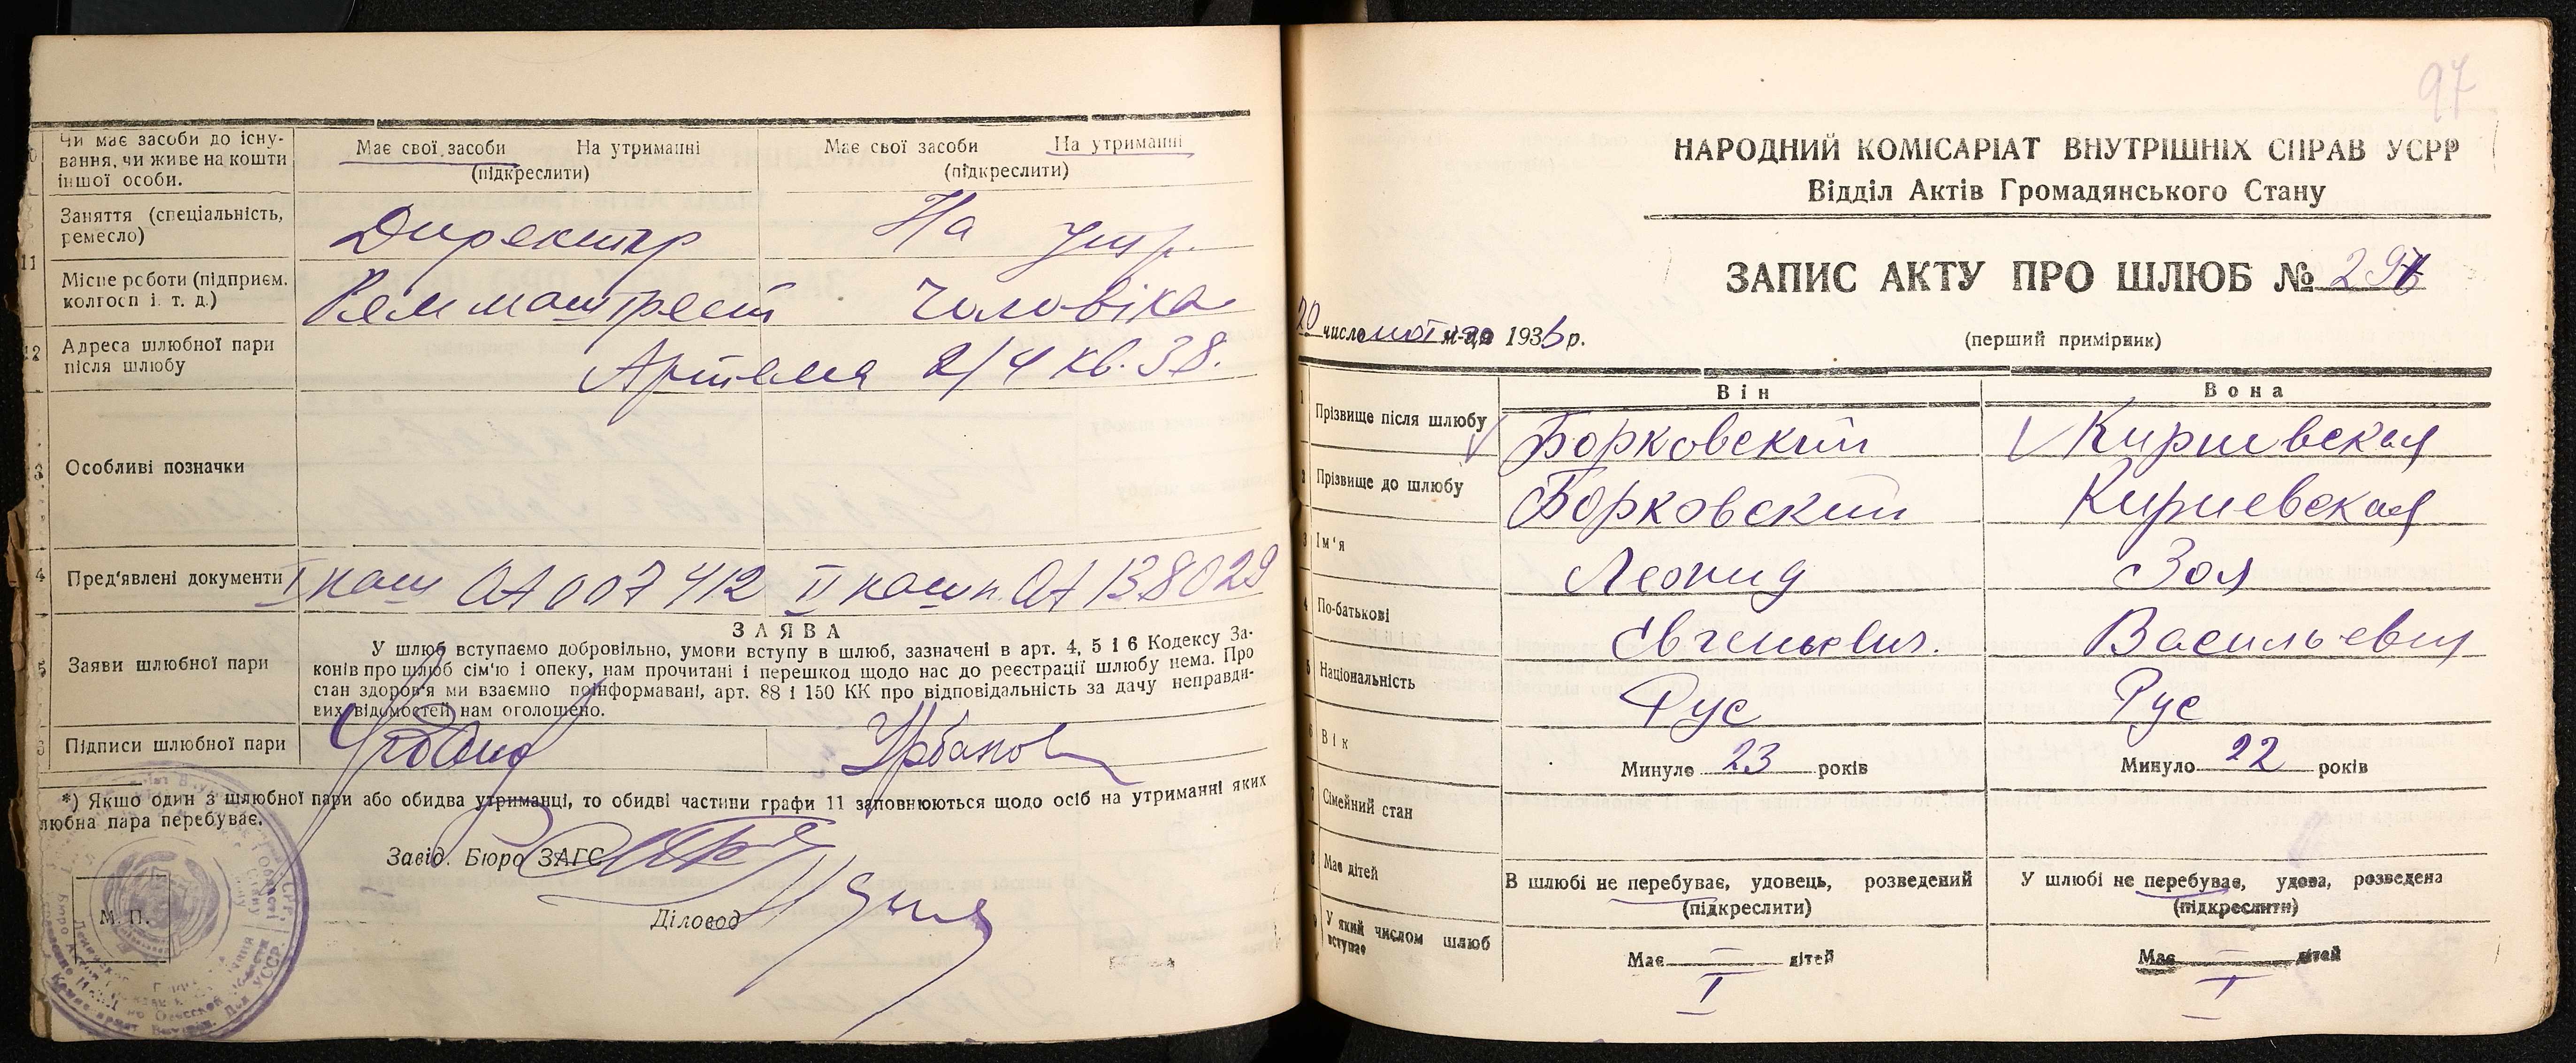 Чи має засоби до існування, чи живе на кошти іншої особи.
Має свої засоби На утриманні
(підкреслити)
Має свої засоби На утриманні
(підкреслити)
11
Заняття (спеціальність, ремесло)
Директор
На утр.
Місце роботи (підприєм. колгосп і. т. д.)
чоловіка
12
Адреса шлюбної пари після шлюбу
Артема 2/4 кв. 38.
3
Особливі позначки
4
Пред'явлені документи
I пашп ОА 007412 II пашп. ОА 138029
5
Заяви шлюбної пари
ЗАЯВА
У шлюб вступаємо добровільно, умови вступу в шлюб, зазначені в арт. 4, 5 і 6 Кодексу За-
конів про шлюб сім'ю і опеку, нам прочитані і перешкод щодо нас до реєстрації шлюбу нема. Про
стан здоров'я ми взаємно поінформавані, арт. 88 і 150 КК про відповідальність за дачу неправди-
вих відомостей нам оголошено.
6
Підписи шлюбної пари
*) Якщо один з шлюбної пари або обидва утриманці, то обидві частини графи 11 заповнюються щодо осіб на утриманні яких
любна пара перебуває.
Завід. Бюро ЗАГС
Діловод
М. П.
97
НАРОДНИЙ КОМІСАРІАТ ВНУТРІШНІХ СПРАВ УСРР
Відділ Актів Громадянського Стану
ЗАПИС АКТУ ПРО ШЛЮБ №
20 число м-ця 1936 р.
(перший примірник)
Він
Вона
1
Прізвище після шлюбу
Борковский
Кириевская
2
Прізвище до шлюбу
Борковский
Кириевская
3
Ім'я
Леонид
Зоя
4
По-батькові
Євгеньевич.
Васильевна
5
Національність
Рус
Рус
6
Вік
Минуло 23 років
Минуло 22 років
7
Сімейний стан
В шлюбі не перебуває, удовець, розведений
(підкреслити)
У шлюбі не перебуває, удова, розведена
(підкреслити)
8
Має дітей
Має — дітей
Має — дітей
9
У який числом шлюб вступає
I
I